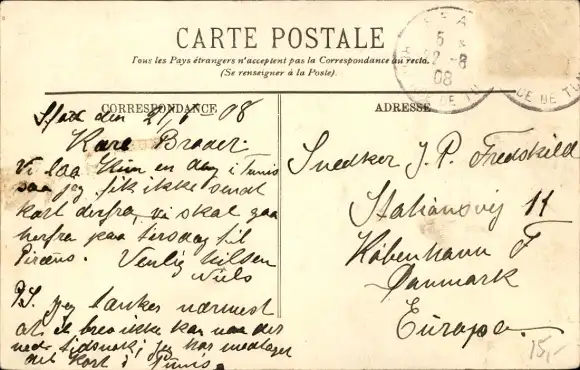 CARTE POSTALE
Tous les Pays étrangers n'acceptent pas la Correspondance au recto.
(Se renseigner à la Poste).
CORRESPONDANCE
Sfax den 21/6 - 08
Kære Broder
Vi laa kun en dag i Tunis
saa jeg fik ikke sendt
kort derfra, vi skal gaa
herfra paa tirsdag til
Piræus. Venlig hilsen
Niels
P.S. jeg tænker nærmest
at et brev ikke kan naa der
ned tidsnok; jeg har modtaget
dit kort i Tunis.
ADRESSE
Snedker J. P. Fredskild
Stationsvej 11
København F
Danmark
Europa.
5
22 -6
08
CE DE TU
CE DE TUN
15,-